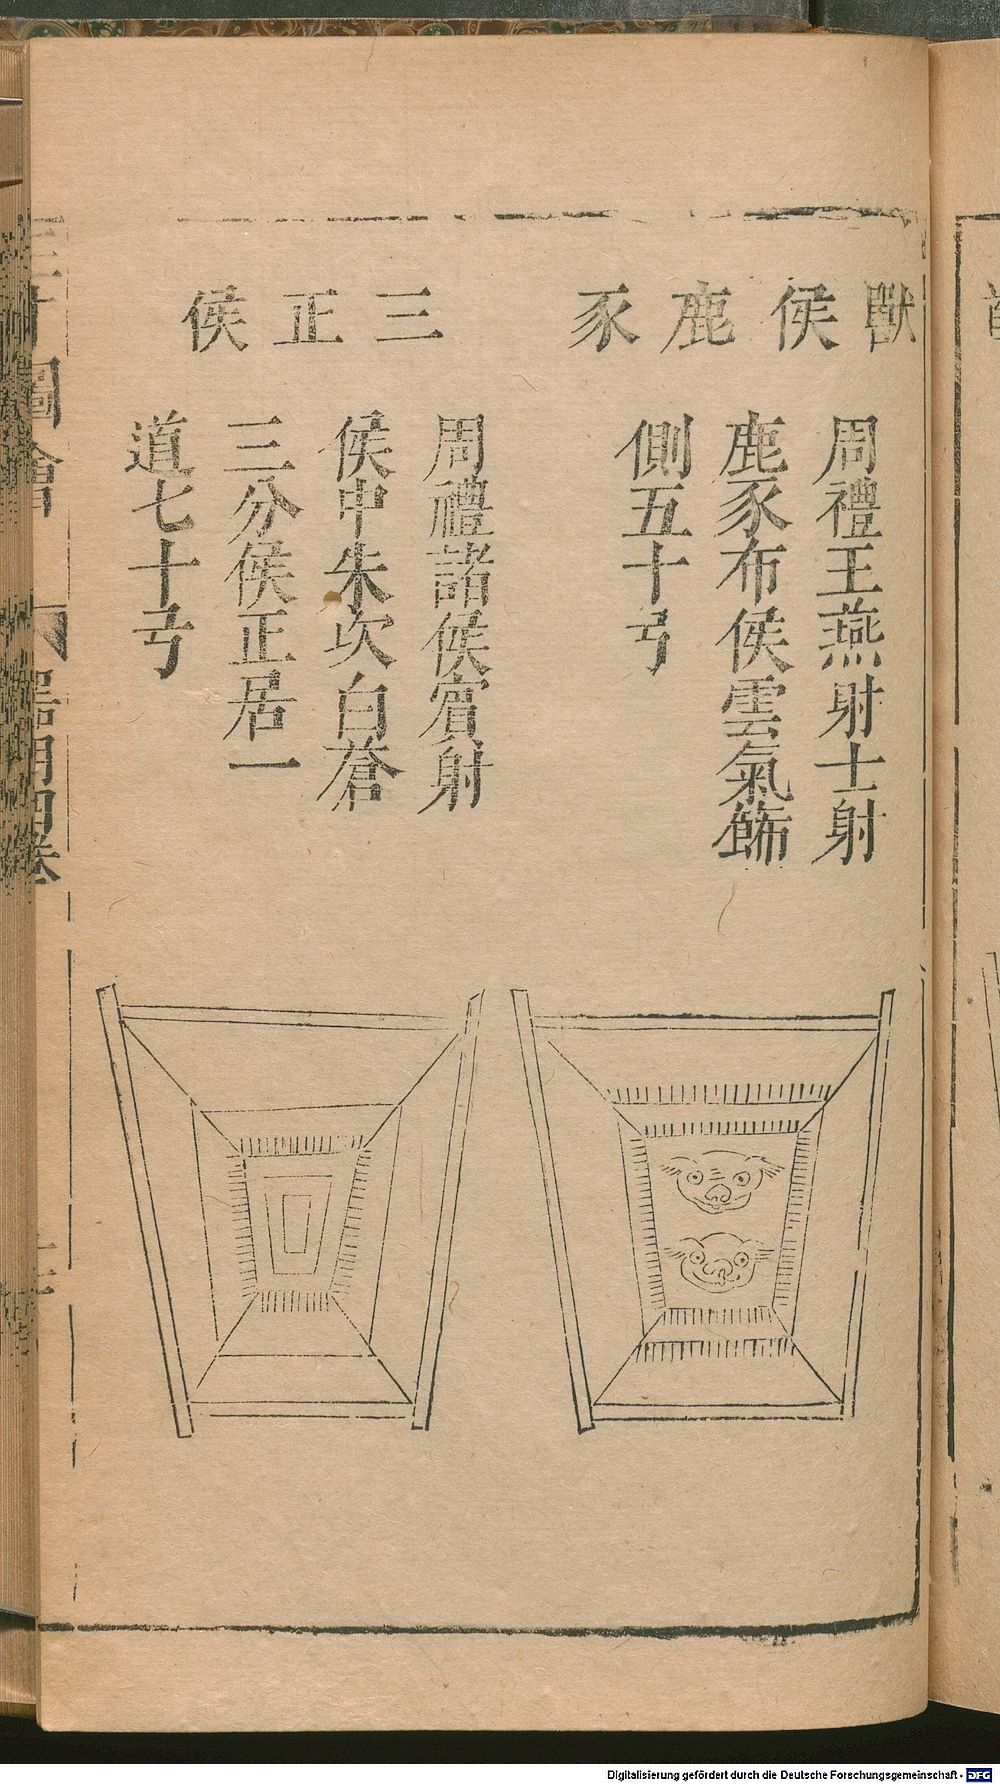 獸侯鹿豕
周禮王燕射士射
鹿豕布侯雲氣飾
側五十弓
三正侯
周禮諸侯賓射
侯中朱次白蒼
三分侯正居一
道七十弓
圖會
器用四卷
Digitalisierung gefördert durch die Deutsche Forschungsgemeinschaft - DFG